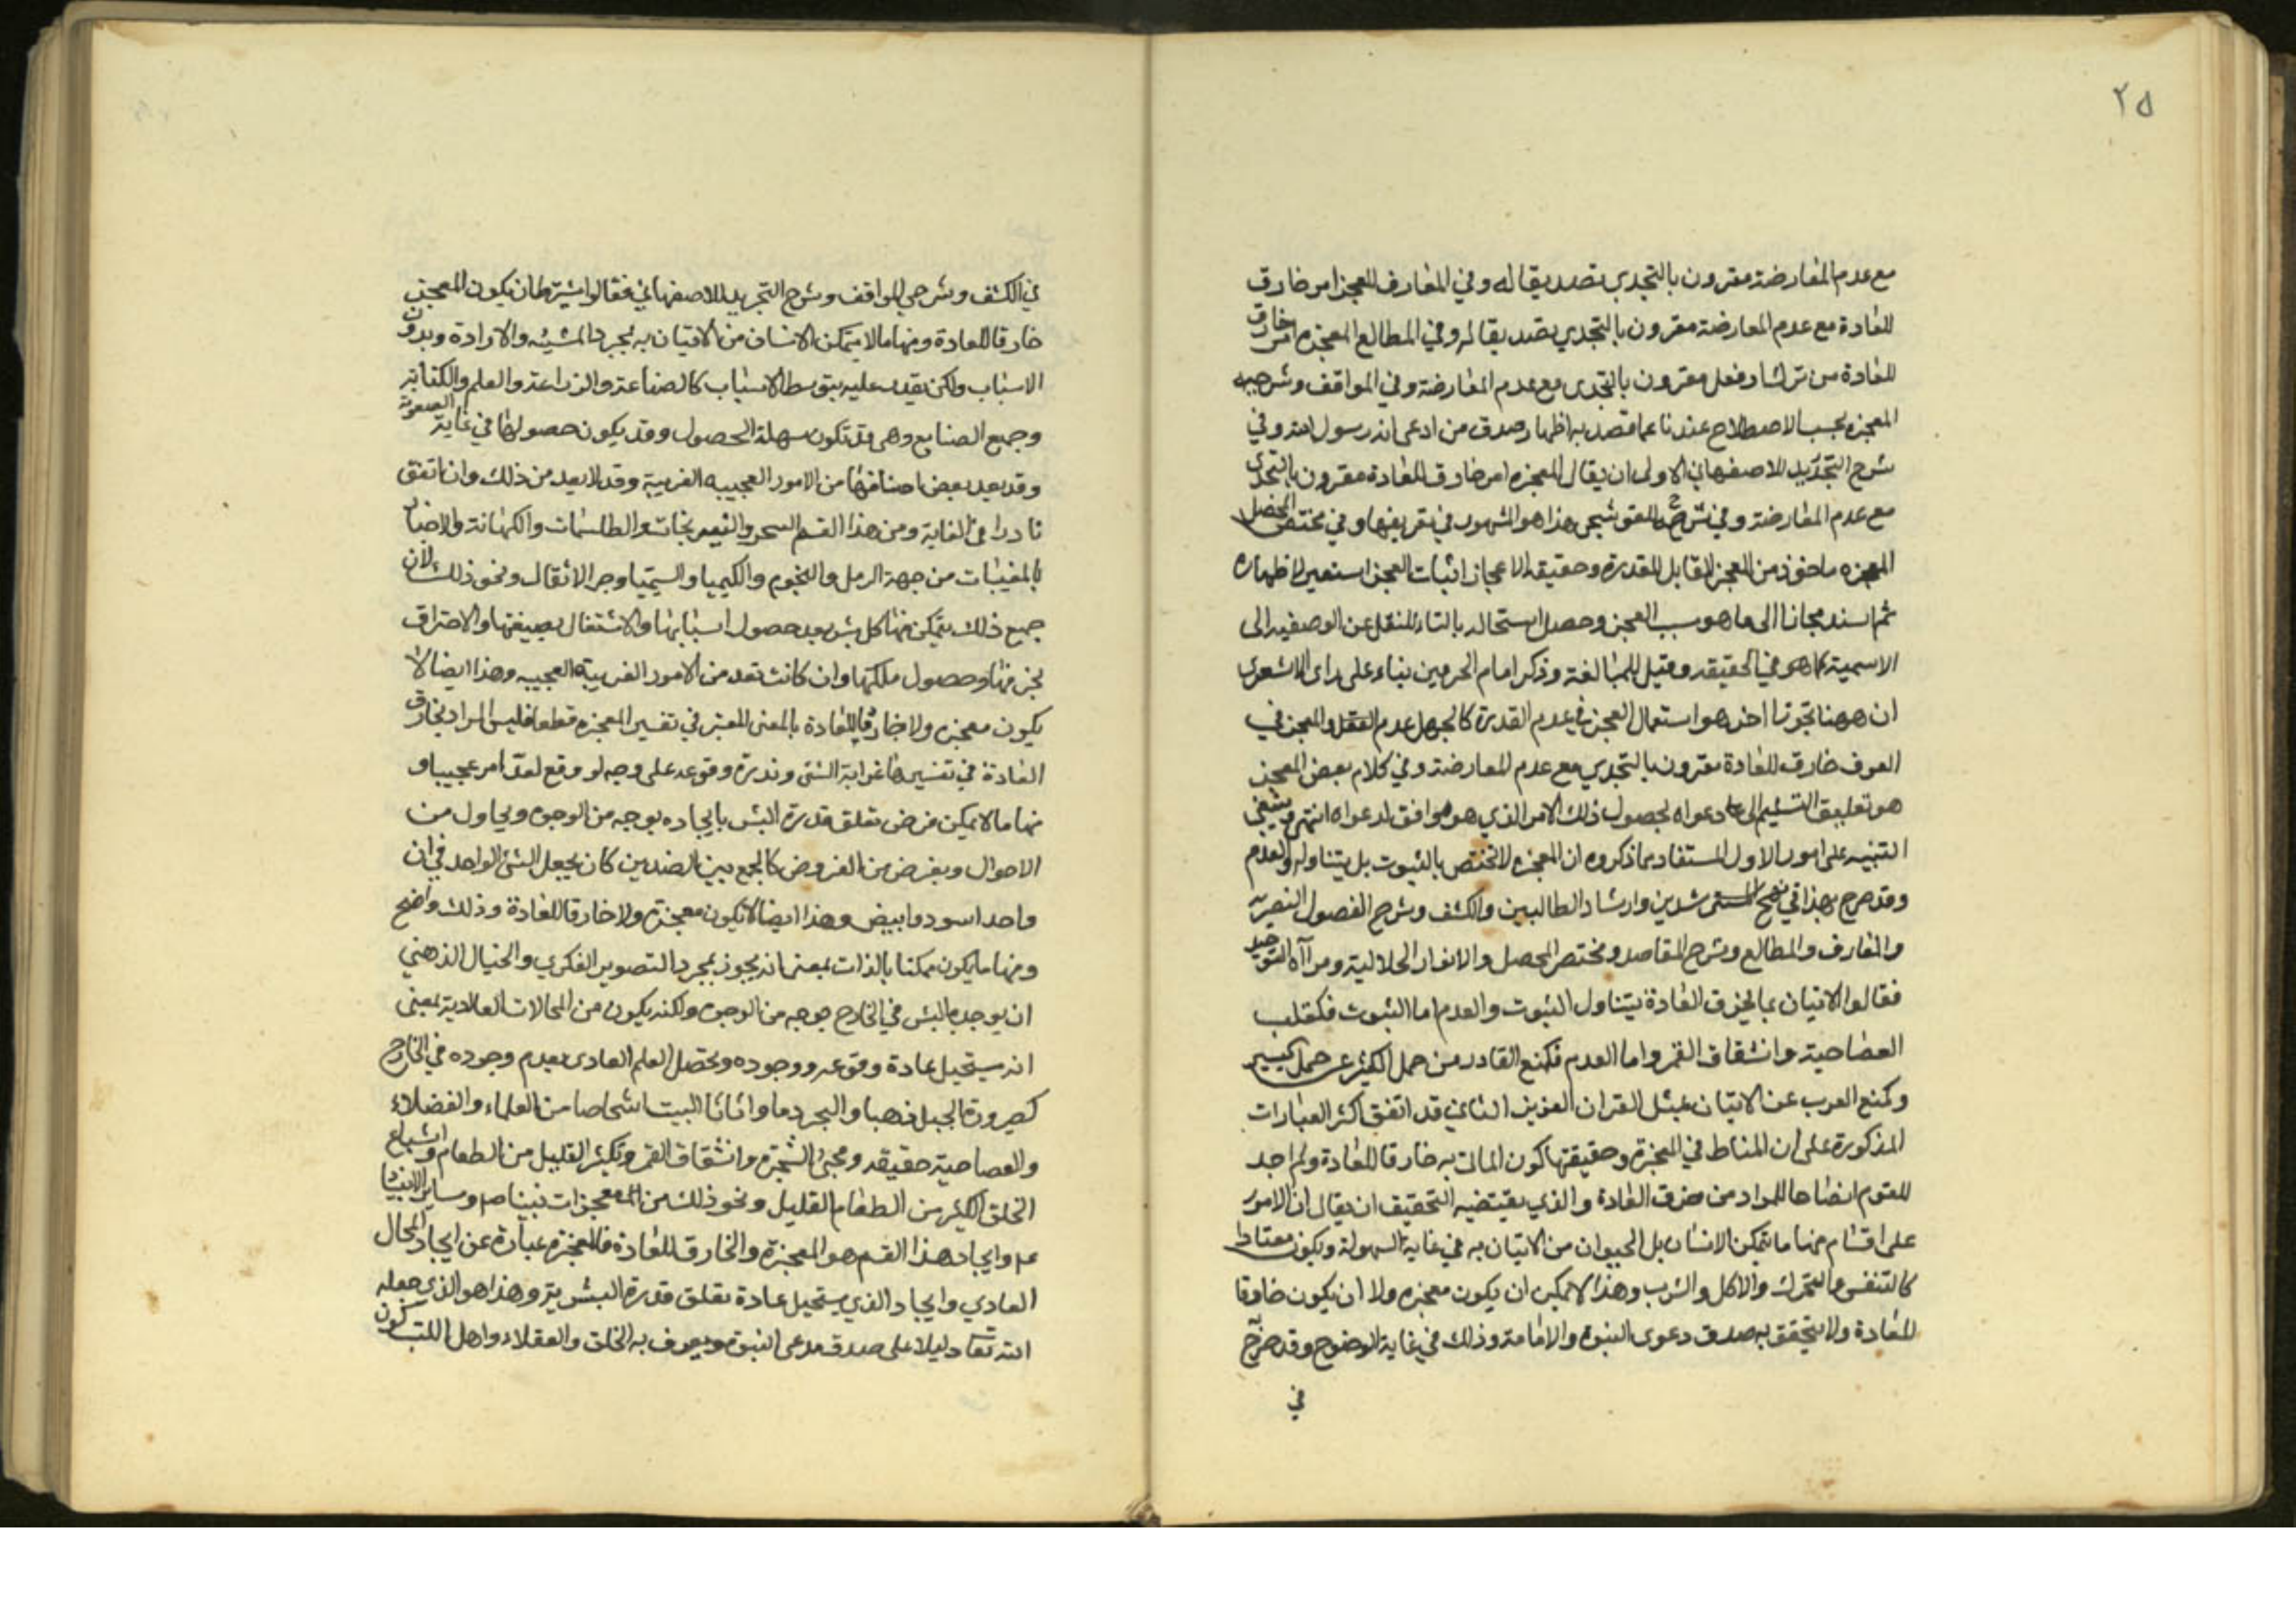 ٢٥
مع عدم المعارضة مقرون بالتحدي تصديقا له وفي المعارف المعجز امر خارق
للعادة مع عدم المعارضة مقرون بالتحدي تصديقا له وفي المطالع المعجزه امر خارق
للعادة من ترك او فعل مقرون بالتحدى مع عدم المعارضة وفي المواقف وشرحيه
المعجزه بحسب الاصطلاح عندنا عما قصد به اظهار صدق من ادعى انه رسول الله وفي
شرح التجريد للاصفهاني الاولى ان يقال المعجزه امر خارق للعادة مقرون بالتحدى
مع عدم المعارضة وفي شرحه للقوشجي هذا هو المشهور في تعريفها وفي مختصر المحصل
المعجزه ماخوذ من العجز المقابل للقدرة وحقيقة الاعجاز اثبات العجز استعير لاظهاره
ثم اسند مجازا الى ما هو سبب العجز وحصل استحاله بالتاء للنقل عن الوصفيه الى
الاسمية كما هى في الحقيقه وقيل للمبالغة وذكر امام الحرمين بناء على راى الاشعرى
ان ههنا تجوزا اخر هو استعمال العجز في عدم القدرة كالجهل عدم العقل والمعجز في
العرف خارق للعادة مقرون بالتحدي مع عدم المعارضة وفي كلام بعض المعجز
هو تعليق التسليم الى دعواه بحصول ذلك الامر الذي هو موافق لدعواه انتهى وينبغي
التنبيه على امور الاول المستفاد مما ذكروه ان المعجزه لا تختص بالثبوت بل يتناوله والعدم
وقد صرح بهذا في نهج المسترشدين وارشاد الطالبين والكشف وشرح الفصول النصيرية
والمعارف والمطالع وشرح المقاصد ومختصر المحصل والانوار الجلالية ومرآة التوحيد
فقالوا الاتيان بما يخرق العادة يتناول الثبوت والعدم اما الثبوت فكقلب
العصا حية وانشقاق القمر واما العدم فكمنع القادر من حمل الكثير عن حمل كبير
وكمنع العرب عن الاتيان بمثل القران العزيز الثاني قد اتفق اكثر العبارات
المذكورة على ان المناط في المعجزة وحقيقتها كون الماتى به خارقا للعادة ولم اجد
للقوم ايضاحا للمراد من خرق العادة والذي يقتضيه التحقيق ان يقال ان الامور
على اقسام منها ما يتمكن الانسان بل الحيوان من الاتيان به في غاية السهولة ويكون معتادا
كالتنفس والتحرك والاكل والشرب وهذا لا يمكن ان يكون معجزه ولا ان يكون خارقا
للعادة ولا يتحقق به صدق دعوى النبوة والامامة وذلك في غاية الوضوح وقد صرح
في
في الكشف وشرحي المواقف وشرح التجريد للاصفهاني فقالوا يشترط ان يكون المعجز
خارقا للعادة ومنها ما لا يتمكن الانسان من الاتيان به بمجرد المشيئه والارادة وبدون
الاسباب ولكن يقدر عليه بتوسط الاسباب كالصناعة والزراعة والعلم والكتابة
وجميع الصنايع وهى قد تكون سهلة الحصول وقد يكون حصولها في غاية الصعوبة
وقد يعد بعض اصنافها من الامور العجيبه الغريبة وقد لا يعد من ذلك وان اتفق
نادرا في الغاية ومن هذا القسم السحر والنيرنجات والطلسمات والكهانة والاخبار
بالمغيبات من جهة الرمل والنجوم والكيميا والسيميا وجر الاثقال ونحو ذلك لان
جميع ذلك يتمكن منها كل بشر بعد حصول اسبابها والاشتغال بصيغتها والاحتراق
بخبرتها وحصول ملكتها وان كانت تعد من الامور الغريبة العجيبه وهذا ايضا لا
يكون معجزه ولا خارقا للعادة بالمعنى المعتبر في تفسير المعجزه قطعا فليس المراد بخارق
العادة في تفسيرها غرابة الشئ وندرة وقوعه على وجه لو وقع لعد امر عجيبا و
منها ما لا يمكن فرض تعلق قدرة البشر بايجاده بوجه من الوجوه وبحاول من
الاحوال وبفرض من الفروض كالجمع بين الضدين كان يجعل الشئ الواحد في ان
واحد اسود وابيض وهذا ايضا لا يكون معجزة ولا خارقا للعادة وذلك واضح
ومنها ما يكون ممكنا بالذات بمعنى انه يجوز بمجرد التصوير الفكري والخيال الذهني
ان يوجده البشر في الخارج بوجه من الوجوه ولكنه يكون من المحالات العادية بمعنى
انه يستحيل عادة وقوعه ووجوده ويحصل العلم العادى بعدم وجوده في الخارج
كصيرورة الجبل ذهبا والبحر دما واثاث البيت اشخاصا من العلماء والفضلاء
والعصا حية حقيقه ومجئ الشجرة وانشقاق القمر وتكثير القليل من الطعام واشباع
الخلق الكثير من الطعام القليل ونحو ذلك من المعجزات نبينا ص وساير الانبيا
ع م وايجاد هذا القسم هو المعجزة والخارق للعادة فالمعجزه عبارة عن ايجاد المحال
العادي وايجاد الذي يستحيل عادة تعلق قدرة البشر به وهذا هو الذي جعله
الله تعا دليلا على صدق مدعى النبوة ويعرف به الخلق والعقلاء واهل اللب كون